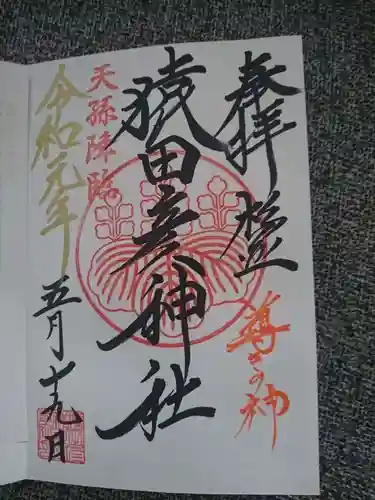 奉拝
導きの神
猿田彦神社
天孫降臨
令和元年
五月十九日